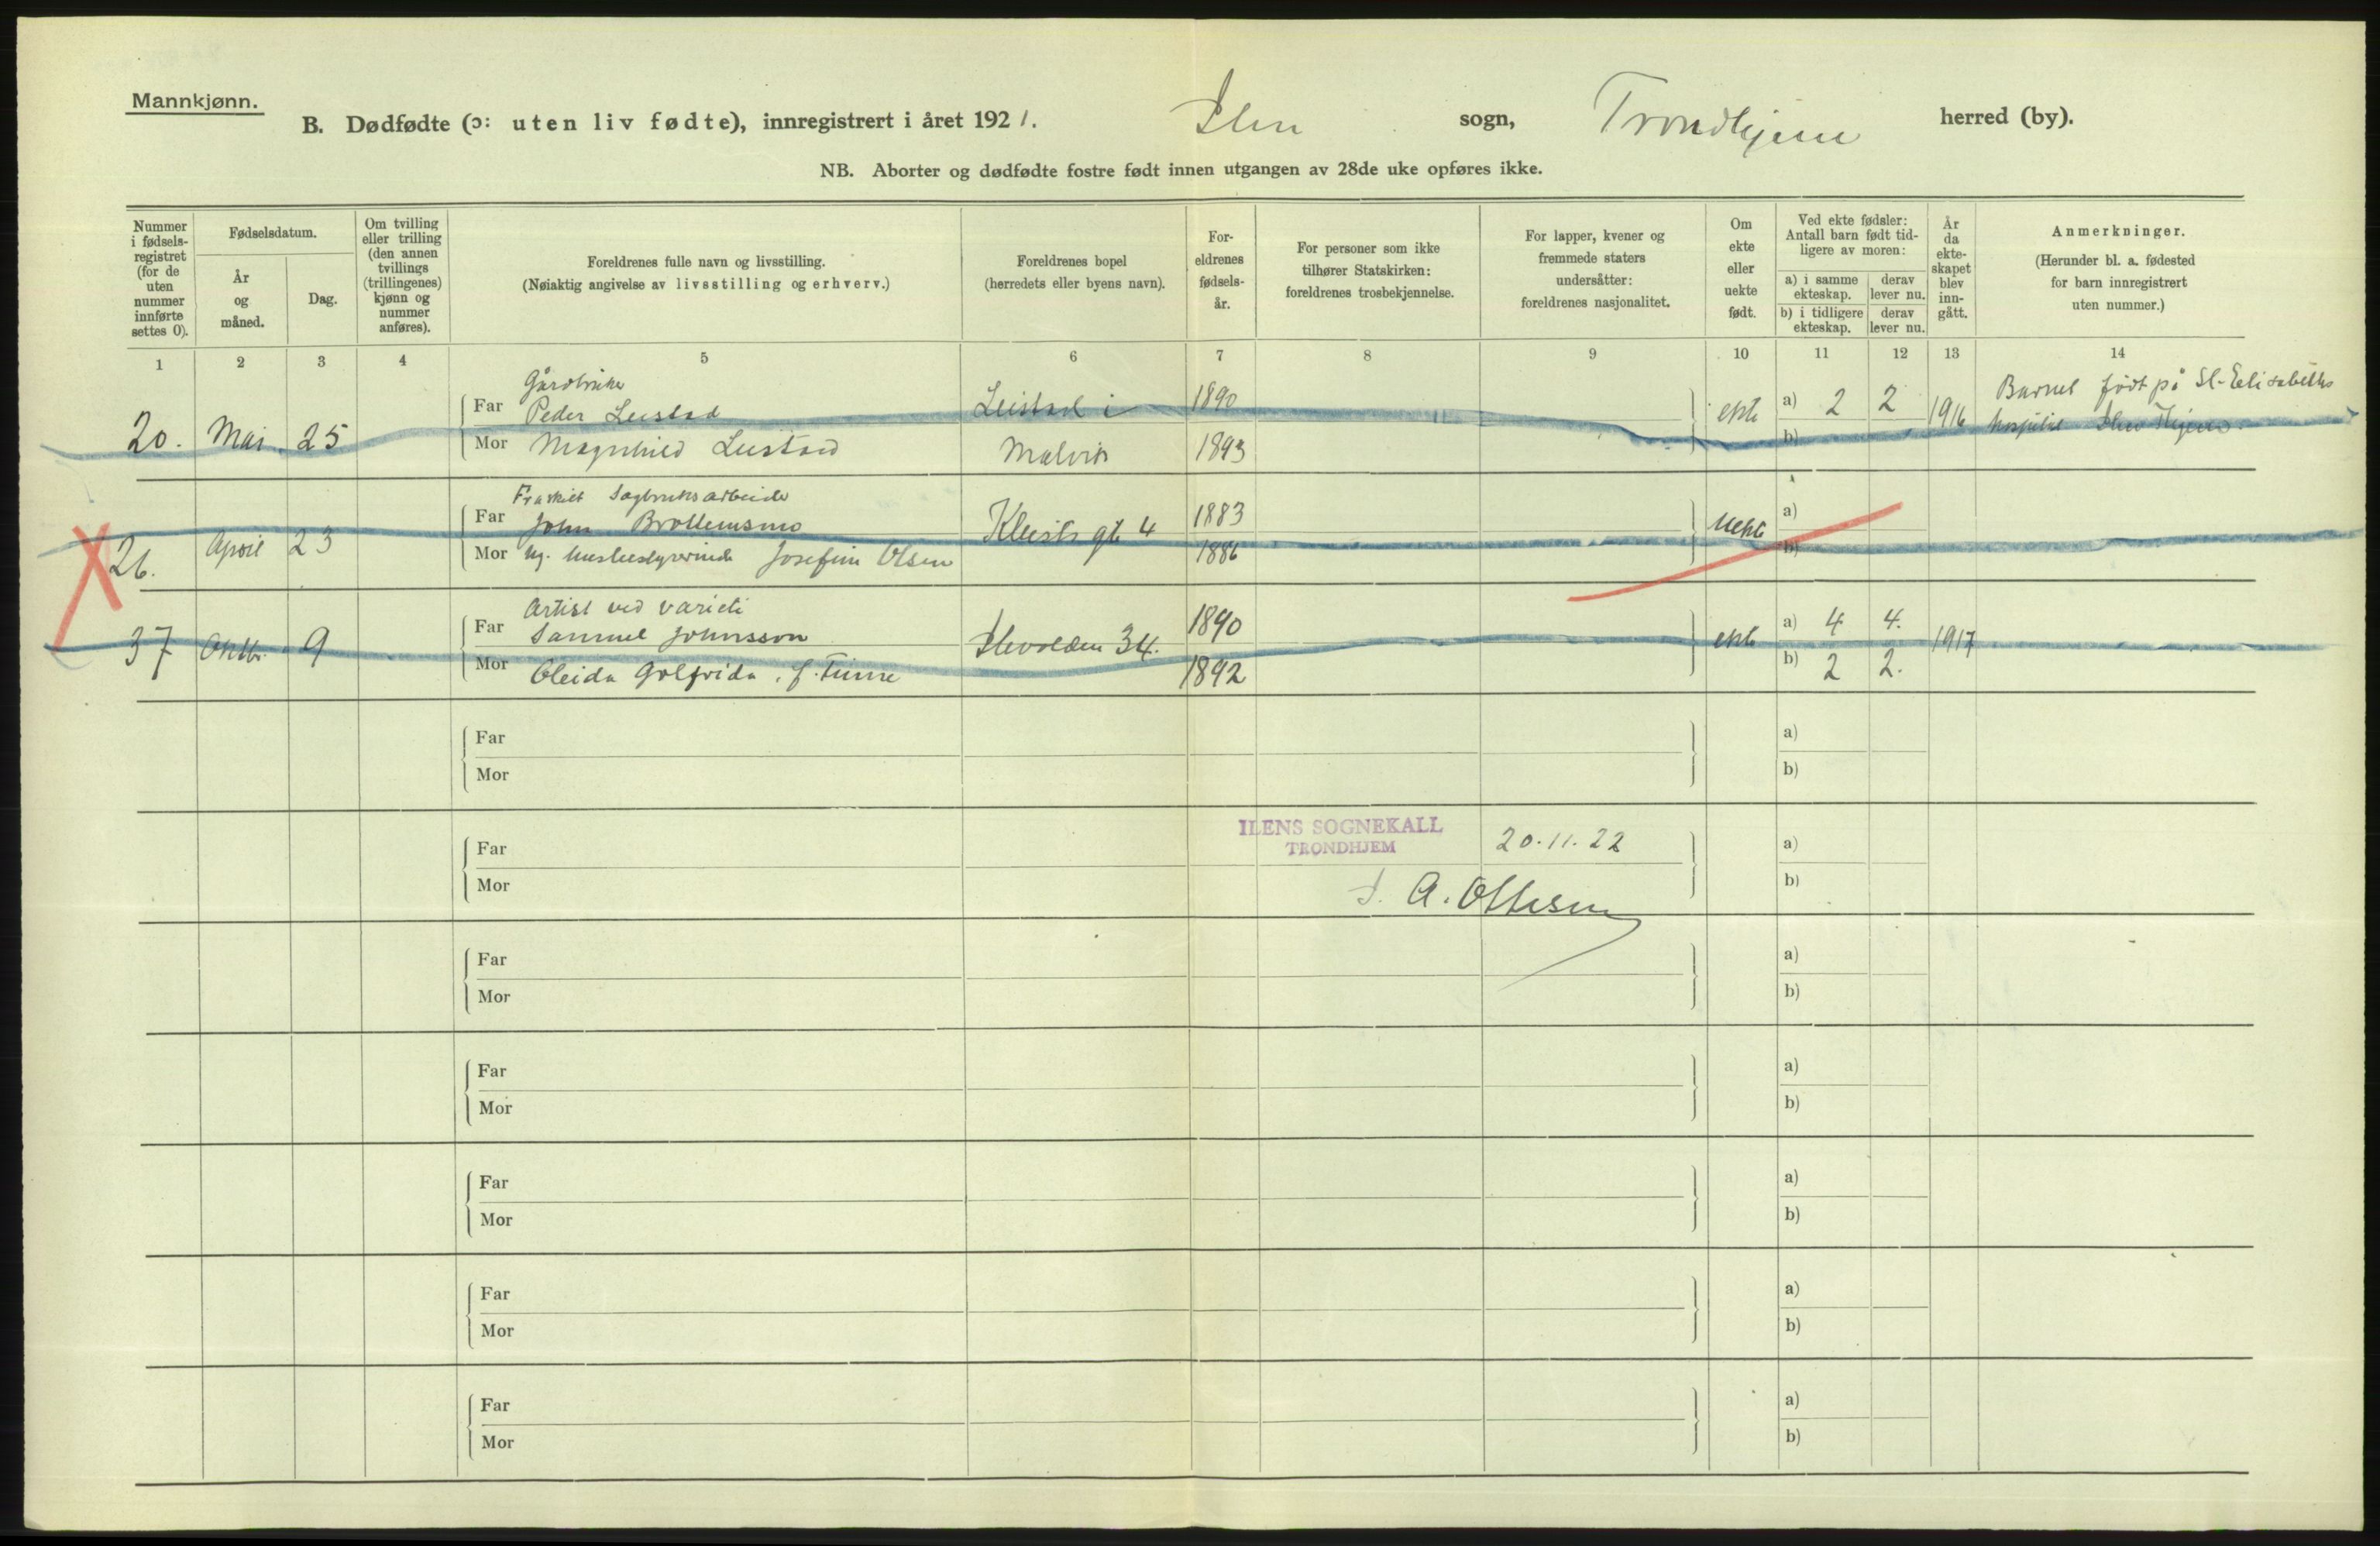 Mannkjønn.
B. Dødfødte (ɔ: uten liv fødte), innregistrert i året 1921. Ilen sogn, Trondhjem herred (by).
NB. Aborter og dødfødte fostre født innen utgangen av 28de uke opføres ikke.
Nummer i fødselsregistret (for de uten nummer innførte settes 0).
Fødselsdatum.
År og måned.
Dag.
Om tvilling eller trilling (den annen tvillings (trillingenes) kjønn og nummer anføres).
Foreldrenes fulle navn og livsstilling.
(Nøiaktig angivelse av livsstilling og erhverv.)
Foreldrenes bopel
(herredets eller byens navn).
Foreldrenes fødselsår.
For personer som ikke tilhører Statskirken: foreldrenes trosbekjennelse.
For lapper, kvener og fremmede staters undersåtter: foreldrenes nasjonalitet.
Om ekte eller uekte født.
Ved ekte fødsler: Antall barn født tidligere av moren:
a) i samme ekteskap.
derav lever nu.
b) i tidligere ekteskap.
derav lever nu.
År da ekteskapet blev inngått.
Anmerkninger.
(Herunder bl. a. fødested for barn innregistrert uten nummer.)
1 2 3 4 5 6 7 8 9 10 11 12 13 14
Gårdbruker
20. Mai 25 Far Peder Leistad Leistad i 1890 ekte a) 2 2 1916 Barnet født på St. Elisabeths
Mor Magnhild Leistad Malvik 1893 b) hospital Ilen
Fraskilt Sagbruksarbeider
26. April 23 Far John Brottemsmo Kleists gt 4 1883 uekte a)
Mor Ug. husbestyrerinde Josefine Olsen 1886 b)
Artist ved varieté
37 Oktbr. 9 Far Samuel Johnsson Ilevolden 34. 1890 ekte a) 4 4. 1917
Mor Oleida Golfrida, f. 1892 b) 2 2.
Far a)
Mor b)
ILENS SOGNEKALL
TRONDHJEM
20.11.22
Far a)
Mor b)
A. Ottesen
Far a)
Mor b)
Far a)
Mor b)
Far a)
Mor b)
Far a)
Mor b)
Far a)
Mor b)